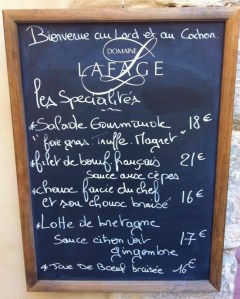 Bienvenue au Lard et au Cochon
DOMAINE
LAFAGE
Les Spécialités
*Salade Gourmande 18€
"foie gras, truffe, Magret"
*filet de bœuf français 21€
sauce aux cèpes
*Choux farcie du chef
et son choux braisé 16€
*Lotte de bretagne
Sauce citron vert 17€
gingembre
*Joue De Bœuf braisée 16€